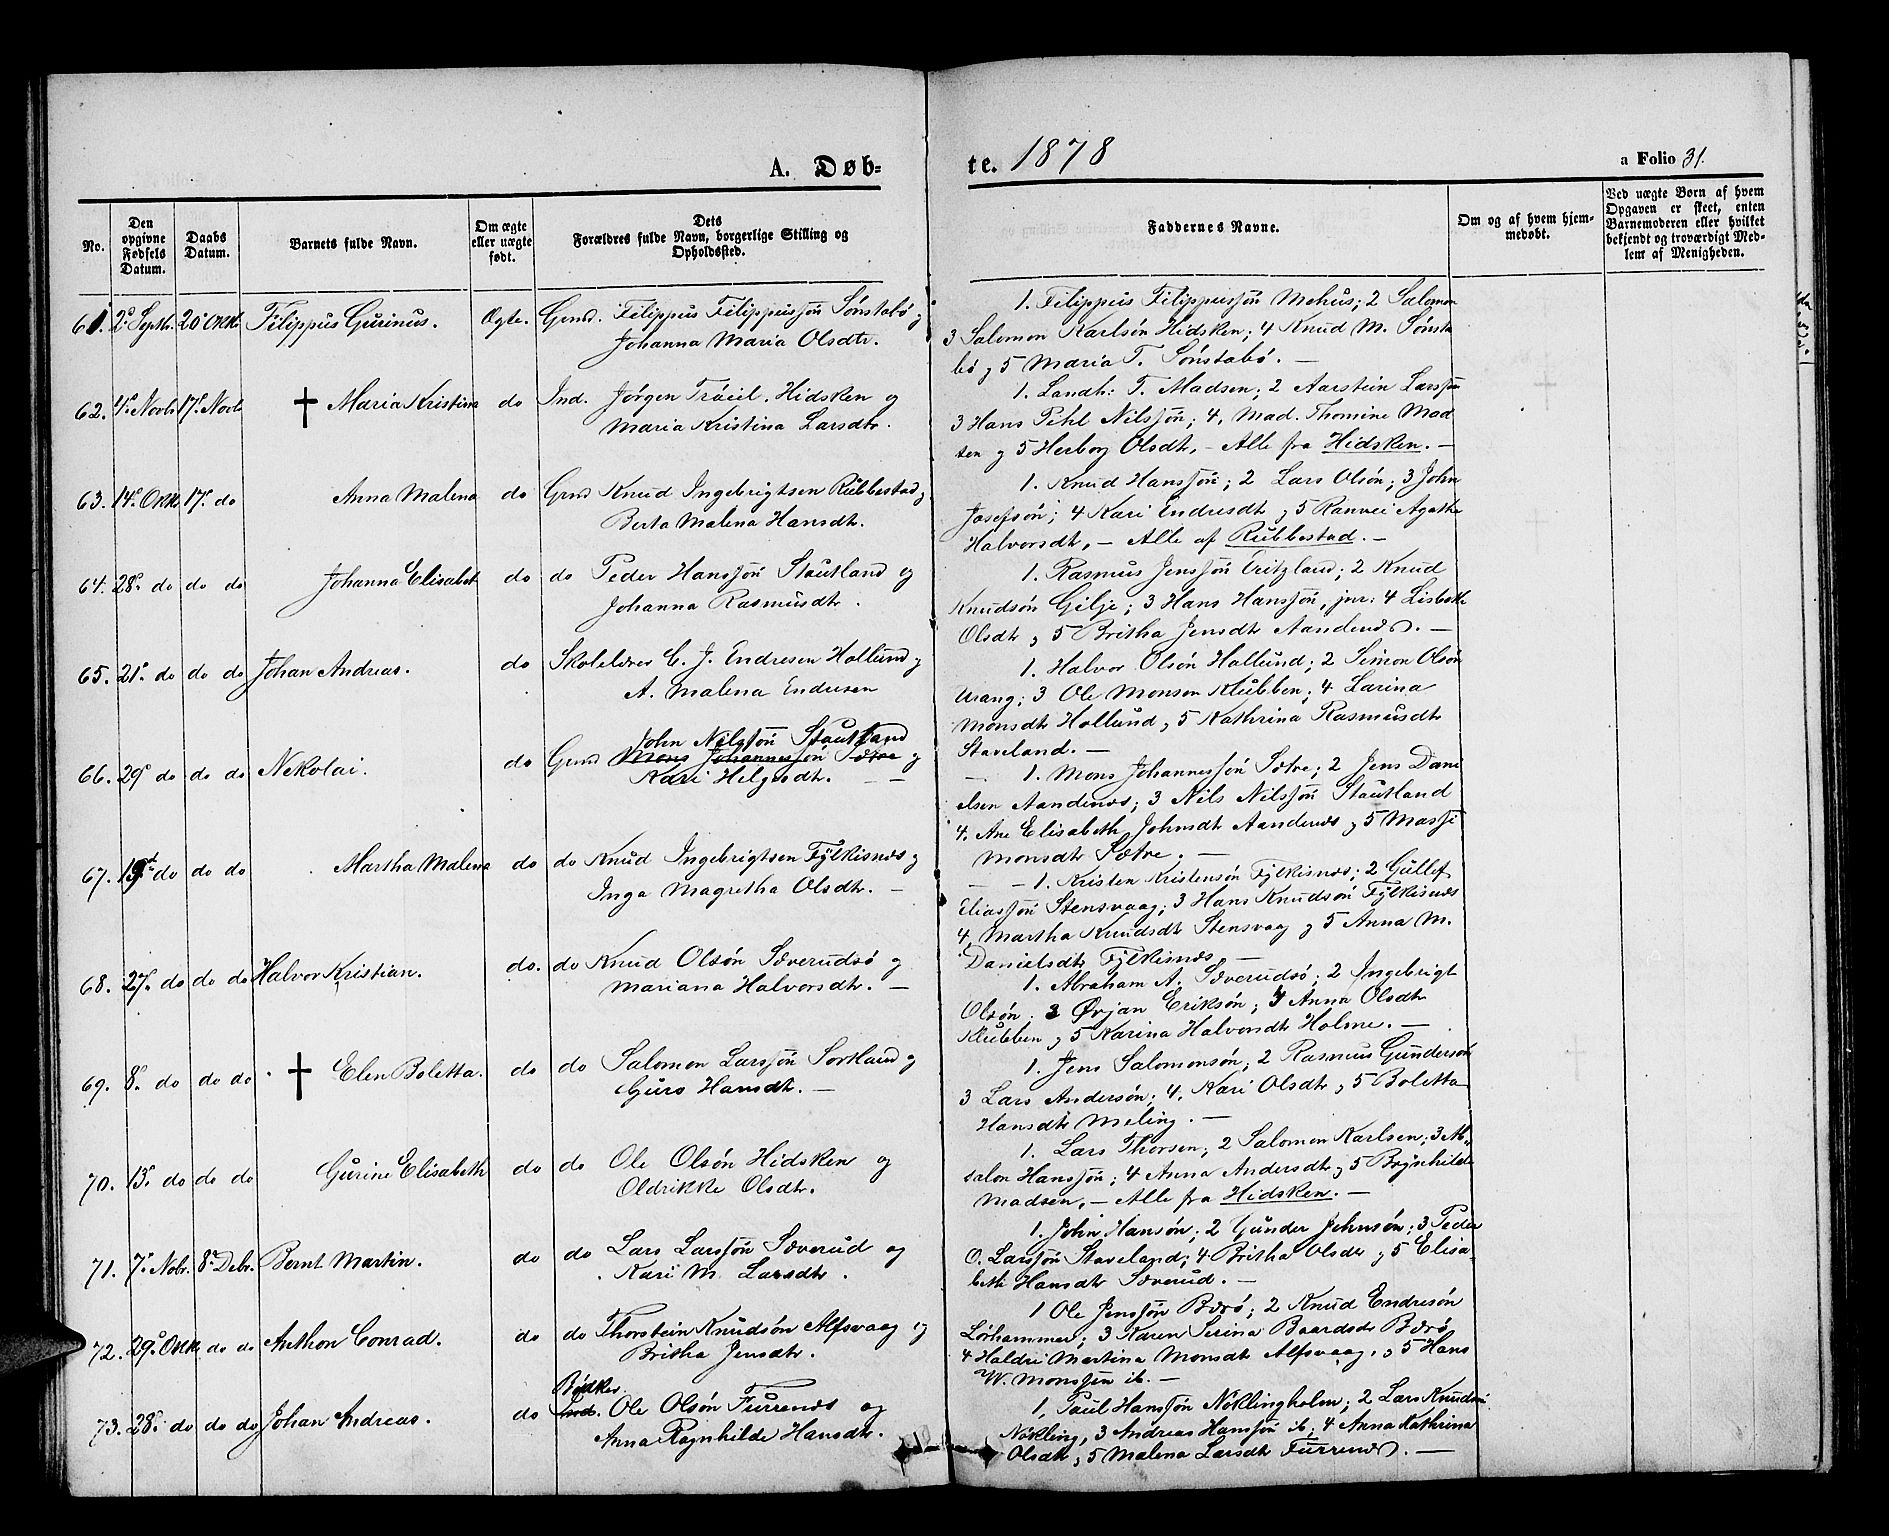 A. Døb-
te. 1878
a Folio 31.
No.
Den opgivne Fødsels Datum.
Daabs Datum.
Barnets fulde Navn.
Om ægte eller uægte født.
Dets Forældres fulde Navn, borgerlige Stilling og Opholdssted.
Faddernes Navne.
Om og af hvem hjemmedøbt.
Ved uægte Børn af hvem Opgaven er skeet, enten Barnemoderen eller hvilket bekjendt og troværdigt Medlem af Menigheden.
61. 2. Septr. 20. Oktr. Filippus Gurinus. Ægte. Grmd. Filippus Filippussøn Sønstabø og
Johanna Maria Olsdtr.
1. Filippus Filippussøn Mehus; 2 Salomon
3 Salomon Karlsøn Hidsken; 4 Knud M. Sønsta
bø og 5 Maria T. Sønstabø. —
62. 4. Novb. 17. Novb. † Maria Kristina do Ind. Jørgen Hidsken og
Maria Kristina Larsdtr.
1. Landh: T. Madsen; 2 Aarstein Larssøn
3 Hans Pihl Nilssøn; 4. Mad. Thomine Mad
sen og 5 Herborg Olsdtr. — Alle fra Hidsken. —
63. 14. Oktr. 17. do Anna Malena do Grmd Knud Ingebrigtsen Rubbestad og
Berta Malena Hansdtr.
1. Knud Hanssøn; 2 Lars Olsøn; 3 John
Josefsøn; 4 Kari Endresdtr og 5 Ranvei Agathe
Halvorsdtr. — Alle af Rubbestad. —
64. 28. do do do Johanna Elisabet do do Peder Hanssøn Stautland og
Johanna Rasmusdtr.
1. Rasmus Jenssøn; 2 Knud
Knudsøn Gilje; 3 Hans Hanssøn, jnr: 4 Lisbeth
Olsdtr og 5 Britha Jensdtr Aandenæs. —
65. 21. do do do Johan Andreas. do Skolelærer C. J. Endresen Hollund og
A. Malena Endresen
1. Halvor Olsøn Hollund; 2 Simon Olsøn
Urang; 3 Ole Monsen Klubben; 4 Larina
Monsdtr Hollund og 5 Kathrina Rasmusdtr
Staveland. —
66. 29 do do do Nikolai. do Grmd John Nilssøn Stautland
Mons Johannessøn Sætre og
Kari Helgesdtr. —
1. Mons Johannessøn Sætre; 2 Jens Dani
elsen Aandenæs; 3 Nils Nilssøn Stautland
4. Ane Elisabeth Johnsdtr Aandenæs og 5 Massi
Monsdtr Sætre. —
67. 19 do do do Martha Malena do do Knud Ingebrigtsen Fylkisnæs og
Inga Magretha Olsdtr. —
1. Kristen Kristensøn Fylkisnæs; 2 Gullef
Eliassøn Stensvaag; 3 Hans Knudsøn Fylkisnæs
4. Martha Knudsdtr Stensvaag og 5 Anna M.
Danielsdtr Fylkisnæs —
68. 27. do do do Halvor Kristian. do. do Knud Olsøn Sæverudsø og
Mariana Halvorsdtr. —
1. Abraham A. Sæverudsø; 2 Ingebrigt
Olsøn. 3 Ørjan Eriksøn; 4 Anna Olsdtr
Klubben og 5 Karina Halvorsdtr Holme. —
69. 8. do do do † Elen Boletta. do do Salomon Larssøn Sortland og
Guro Hansdtr. —
1. Jens Salomonsøn; 2 Rasmus Gundersøn
3 Lars Andersøn; 4. Kari Olsdtr og 5 Boletta
Hansdtr Meling. —
70. 13. do do do Gurine Elisabeth do do Ole Olsøn Hidsken og
Oldrikke Olsdtr.
1. Lars Thorsen; 2 Salomon Karlsen; 3 Ab-
salon Hanssøn; 4 Anna Andersdtr og 5 Brynhilde
Madsen. — Alle fra Hidsken. —
71. 7. Nobr. 8. Debr. Bernt Martin. do do Lars Larssøn Sæverud og
Kari M. Larsdtr.
1. John Hansøn; 2 Gunder Johnsøn; 3 Peder
O. Larssøn Staveland; 4 Britha Olsdr og 5 Elisa-
beth Hansdtr Sæverud. —
72. 29. Oktr. do do Anthon Conrad. do do Thorstein Knudsøn Alfsvaag og
Britha Jensdtr.
1 Ole Jenssøn Børø; 2 Knud Endresøn
Lørhammer; 3 Karen Serina Baardsdr Børø
4 Haldri Martina Monsdtr Alfsvaag. og 5 Hans
W. Monssen ib. —
73. 28. do do do Johan Andreas. do Bødker. Ind. Ole Olsøn Furrenæs og
Anna Ragnhilde Hansdtr.
1, Paul Hanssøn Nøklingholm; 2 Lars Knudsøn
Nøkling, 3 Andreas Hanssøn ib; 4 Anna Kathrina
Olsdtr, og 5 Malena Larsdtr Furrenæs. —